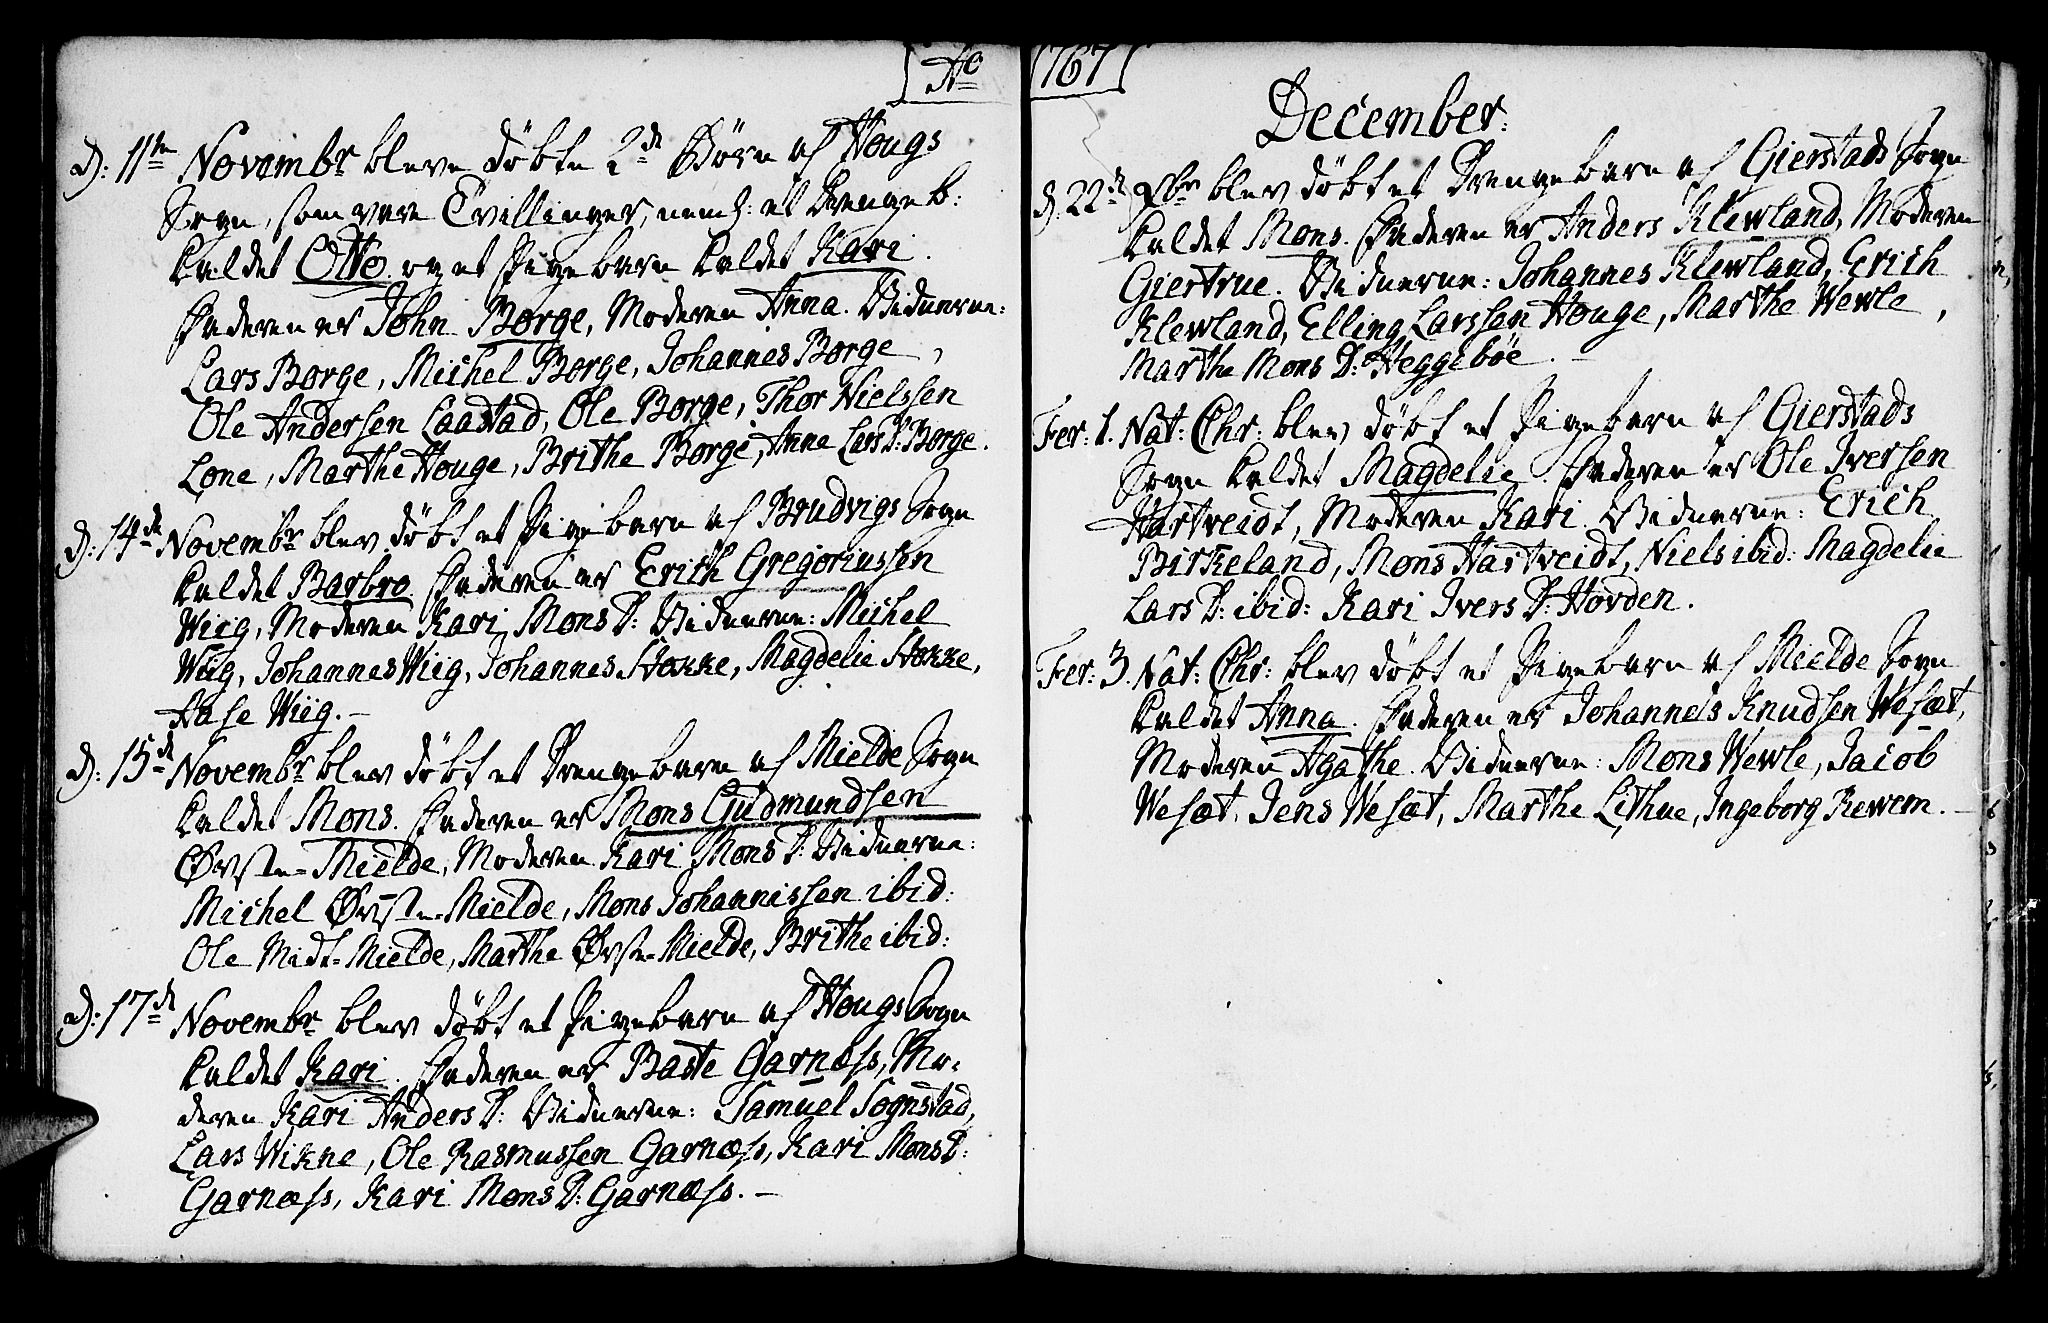 Ao
D: 11te Novembr bleve döbte 2de Börn af Hougs
Sogn, som vare Tvillinger, neml: et Drengeb:
kaldet Otto og et Pigebarn kaldet Kari.
Faderen er John Borge, Moderen Anna. Vidnerne:
Lars Borge, Michel Borge, Johannes Borge,
Ole Andersen Laastad, Ole Borge, Thor Nielssen
Lone, Marthe Houge, Brithe Borge, Anne Lars D: Borge.
D: 14de Novembr blev döbt et Pigebarn af Brudvigs Sogn
kaldet Barbro. Faderen er Erich Gregoriussen
Wiig, Moderen Kari Mons D: Vidnerne: Michel
Wiig, Johannes Wiig, Johannes Stokke, Magdelie Stokke,
Aase Wiig.
D: 15de Novembr blev döbt et Drengebarn af Mielde Sogn
kaldet Mons. Faderen er Mons Gudmundsen
Øvste-Mielde, Moderen Kari Mons D: Vidnerne:
Michel Øvste-Mielde, Mons Johannissen ibid:
Ole Midt-Mielde, Marthe Øvste-Mielde, Brithe ibid:
D: 17de Novembr blev döbt et Pigebarn af Hougs Sogn
kaldet Kari. Faderen er Baste Garnæss, Mo-
deren Kari Anders D: Vidnerne: Samuel Sognstad,
Lars Wikne, Ole Rasmussen Garnæss, Kari Mons D:
Garnæss, Kari Mons D: Garnæss.
1767
December:
D: 22de Xbr blev döbt et Drengebarn af Gierstads Sogn
kaldet Mons. Faderen er Anders Klewland, Moderen
Giertrue. Vidnerne: Johannes Klewland, Erich
Klewland, Elling Larssen Houge, Marthe Wewle,
Marthe Mons D: Heggebøe.
Fer: 1. Nat: Chr: blev döbt et Pigebarn af Gierstads
Sogn kaldet Magdelie. Faderen er Ole Iversen
Hartveidt, Moderen Kari. Vidnerne: Erich
Birkeland, Mons Hartveidt, Niels ibid: Magdelie
Lars D: ibid: Kari Ivers D: Hovden.
Fer: 3. Nat: Chr: blev döbt et Pigebarn af Mielde Sogn
kaldet Anna. Faderen er Johannes Knudsen Wesæt,
Moderen Agathe. Vidnerne: Mons Wewle, Jacob
Wesæt, Jens Wesæt, Marthe Lithue, Ingeborg Rewem.